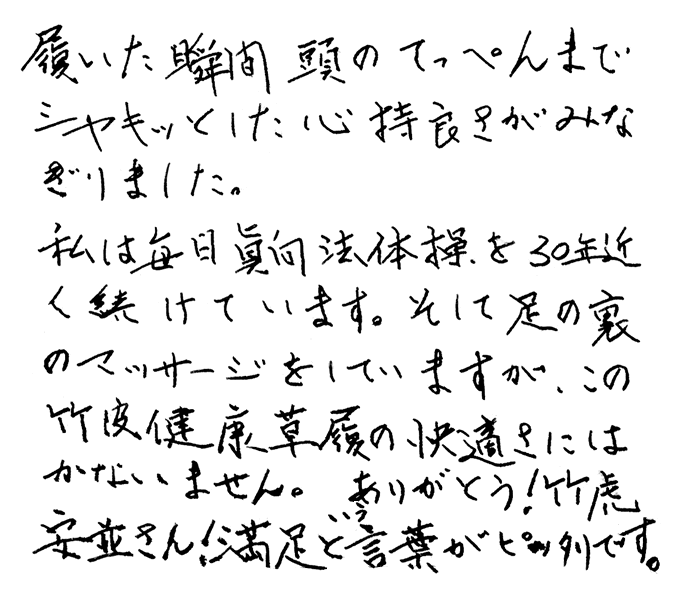 履いた瞬間 頭のてっぺんまで
シャキッとした心持良さがみな
ぎりました。
私は毎日眞向法体操を30年近
く続けています。そして足の裏
のマッサージをしていますが、この
竹皮健康草履の快適さには
かないません。 ありがとう!竹虎
安並さん!満足という言葉がピッタリです。